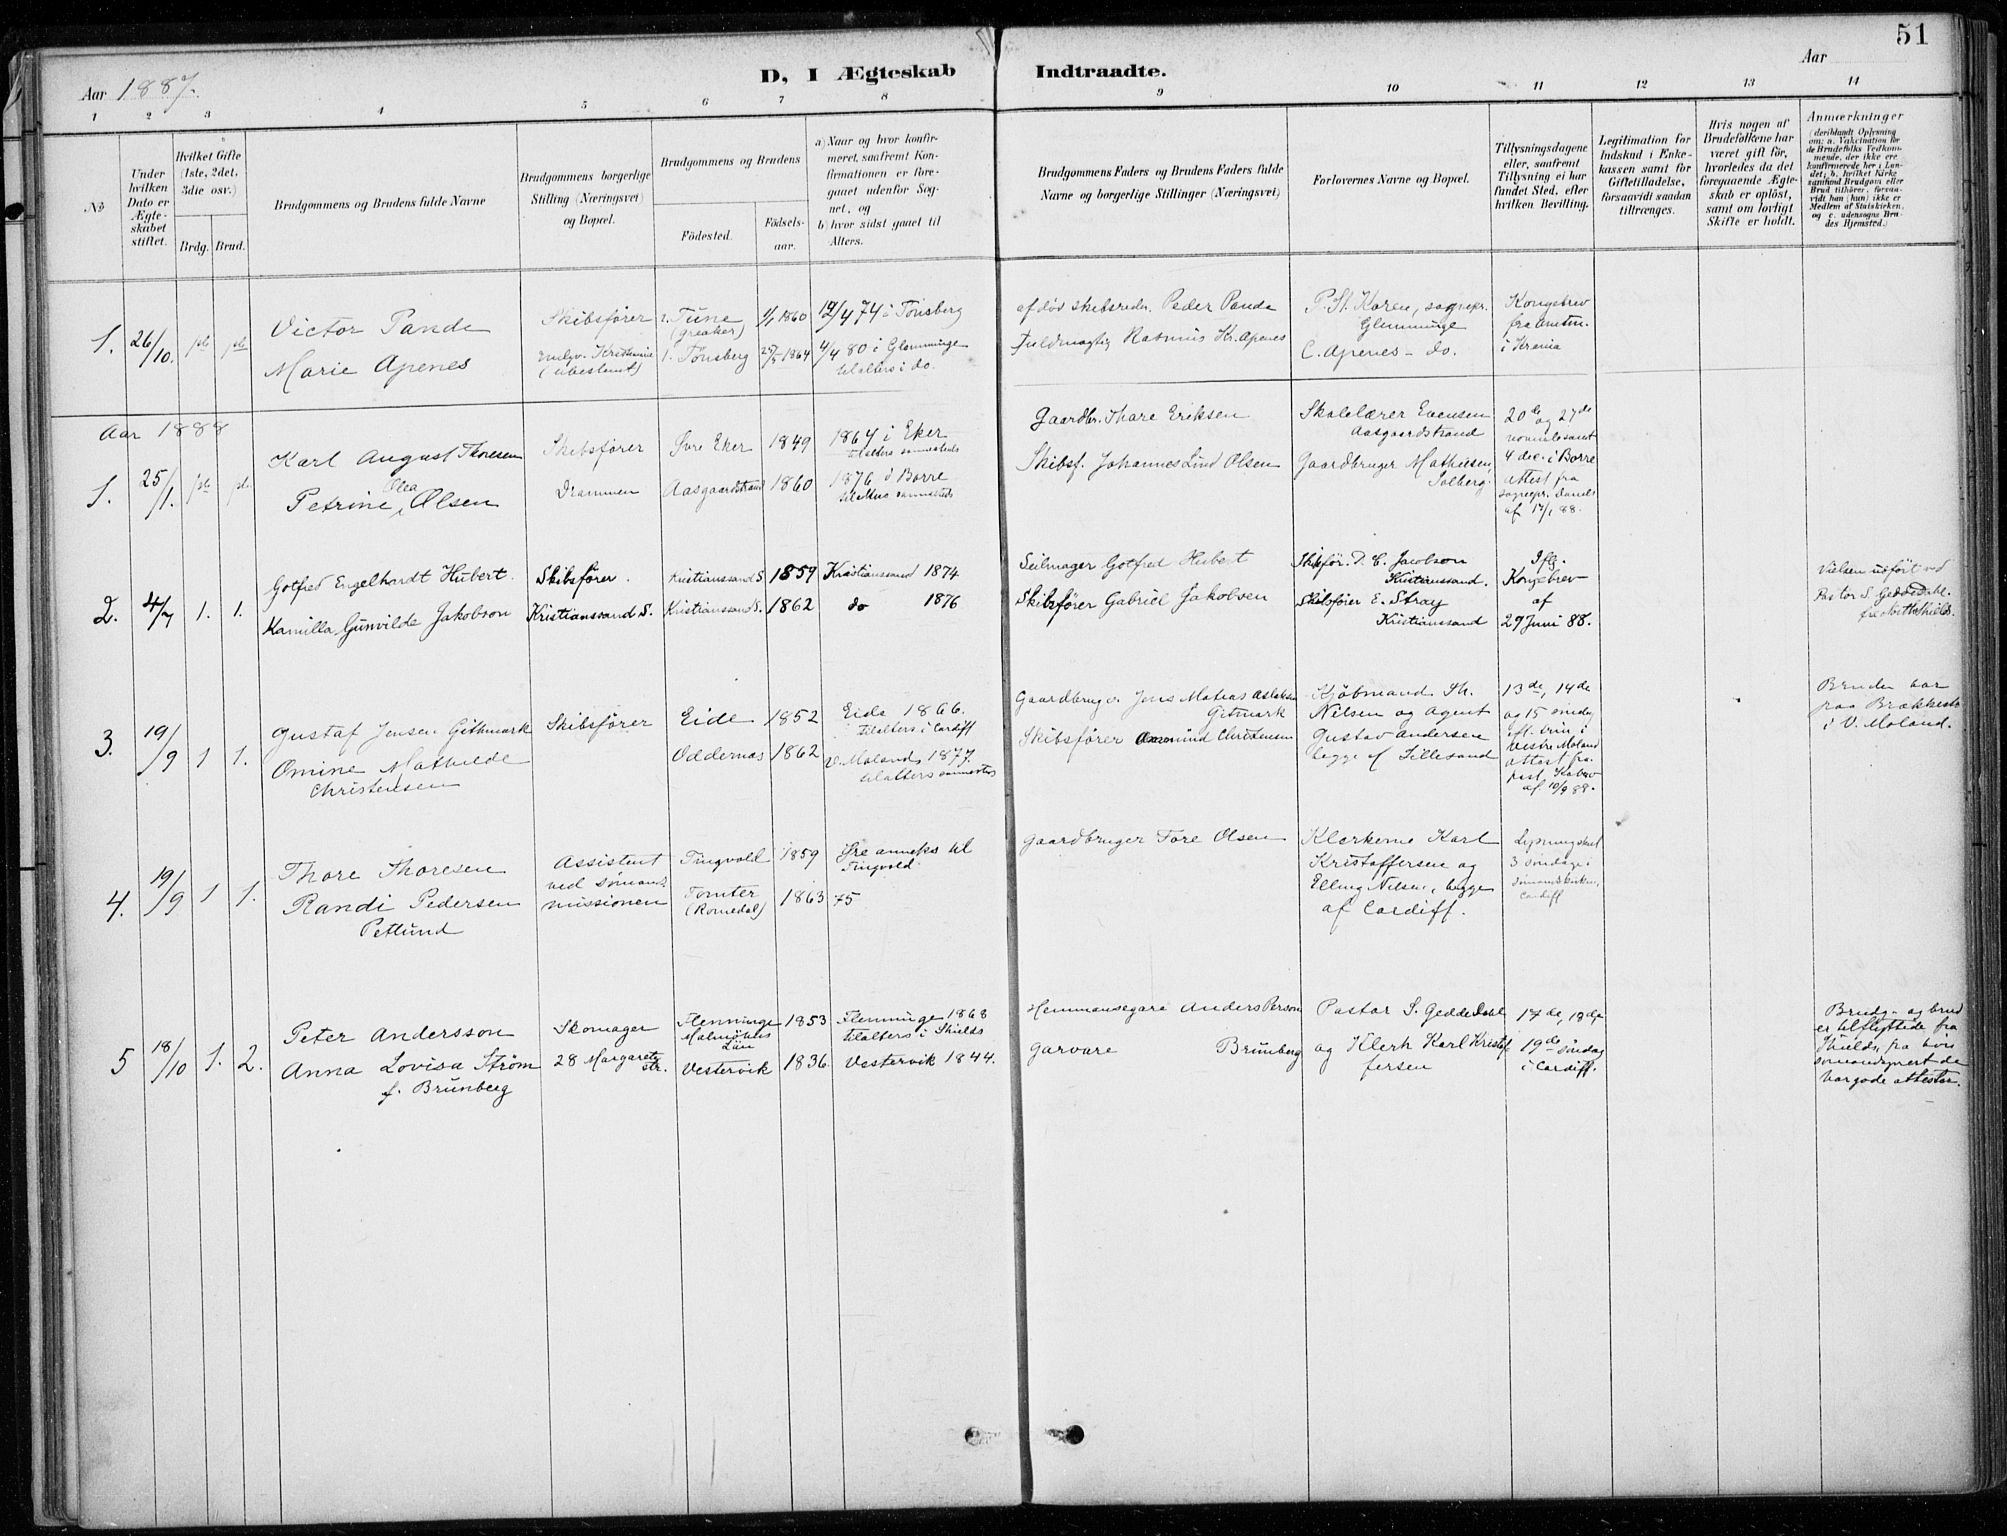 51
D, I Ægteskab Indtraadte.
Aar 1887. Aar
1 2 3 4 5 6 7 8 9 10 11 12 13 14
No
Under hvilken Dato er Ægteskabet stiftet.
Hvilket Gifte (1ste, 2det, 3die osv.)
Brdg. Brud.
Brudgommens og Brudens fulde Navne
Brudgommens borgerlige Stilling (Næringsvei) og Bopæl.
Brudgommens og Brudens
Födested. Födselsaar.
a) Naar og hvor konfirmeret, saafremt Konfirmationen er foregaaet udenfor Sognet, og
b) hvor sidst gaaet til Alters.
Brudgommens Faders og Brudens Faders fulde Navne og borgerlige Stillinger (Næringsvei)
Forlovernes Navne og Bopæl.
Tillysningsdagene eller, saafremt Tillysning ei har fundet Sted, efter hvilken Bevilling.
Legitimation for Indskud i Enkekassen samt for Giftetilladelse, forsaavidt saadan tiltrænges.
Hvis nogen af Brudefolkene har været gift för, hvorledes da det foregaaende Ægteskab er oplöst, samt om lovligt Skifte er holdt.
Anmærkninger
(deriblandt Oplysning om: a. Vakcination for de Brudefolks Vedkommende, der ikke ere konfirmerede her i Landet; b. hvilket Kirkesamfund Brudgom eller Brud tilhörer, forsaavidt han (hun) ikke er Medlem af Statskirken, og c. udensogns Brudes Hjemsted.)
1. 26/10.
Victor Pande
Marie Apenes
Skibsfører
(ubestemt)
2. Tune
(greaker)
1. Tönsberg
1/1 1860
1864
19/4 74 i Tönsberg
4/4 80 i Glemminge
tilalters i do.
afdöd skibsreder Peder Pande
Fuldmægtig Rasmus Kr. Apenes
P. St. Koren, sognepr.
Glemminge
C. Apenes - do.
Kongebrev
fra
i Krania
Aar 1888
1. 25/1.
Karl August Thoresen
Olea
Petrine Olsen
Skibsfører
Drammen
Øvre Eker
Aasgaardstrand
1849
1860
1864 i Eker
tilalters sammesteds
1876 i Borre
tilalters sammesteds
Gaardbr. Thore Eriksen
Skibsf. Johannes Lind Olsen
Skolelærer Evensen
Aasgaardstrand
Gaardbruger Mathiesen,
Solberg.
20de og 27de
november samt
4 dec. i Borre
attest fra
sognepr.
af 17/1 88.
2. 4/7 1. 1.
Gotfred Engelhardt Hubert.
Kamilla Gunvilde Jakobson
Skibsfører.
Kristianssand S.
Kristianssand S.
Kristianssand S.
1859
1862
Kristianssand 1874
do 1876
Seilmager Gotfred Hubert
Skibsfører Gabriel Jakobsen
Skibsfør. D. C. Jacobson
Kristianssand.
Skibsfører E. Stray
Kristianssand
Iflg.
Kongebrev
af
29 Juni 88.
Vielsen udført ved
Pastor S. Geddedahl.
fra North Shields.
3. 19/9 1 1.
Gustaf Jensen Githmark
Omine Mathilde
Christensen
Skibsfører
Eide
Oddernæs
1852
1862
Eide 1866.
tilalters i Cardiff
V. Moland 1877.
tilalters sammesteds
Gaardbruger Jens Matias Aslaksen
Gitmark
Skibsfører Christensen
Kjöbmand Th.
Nilsen og Agent
Gustav Andersen
begge af Lillesand
13de, 14de
og 15 søndag
eft. trin. i
Vestre Moland
attest fra
past.
af 10/9 88.
Bruden bor
paa Brækkestø
i V. Moland.
4. 19/9 1 1.
Thore Thoresen
Randi Pedersen
Petlund
Assistent
ved sømands
missionen
Tingvold
Tomter
(Romedal)
1859
1863
Øre anneks til
Tingvold.
75
Gaardbruger Tore Olsen
Klerkerne Karl
Kristoffersen og
Elling Nilsen, begge
af Cardiff.
3 søndage i
sømandskirken,
Cardiff
5 18/10 1. 2.
Peter Andersson
Anna Lovisa Strøm
f. Brunberg
Skomager
28 Margarets
str.
Flenninge
Malmöhus
Län
Vestervik
1853
1836.
Flenninge 1868
tilalters i Shields
Vestervik 1844.
Hemmansegare Anders Person
Garvare Brunberg
Pastor S. Geddedahl
og Klerk Karl Kristof
fersen
17de, 18de,
19de søndag
i Cardiff.
Brudg. og brud
er tilflyttede fra
Shields, fra hvis
sømandsprest de
har gode attester.